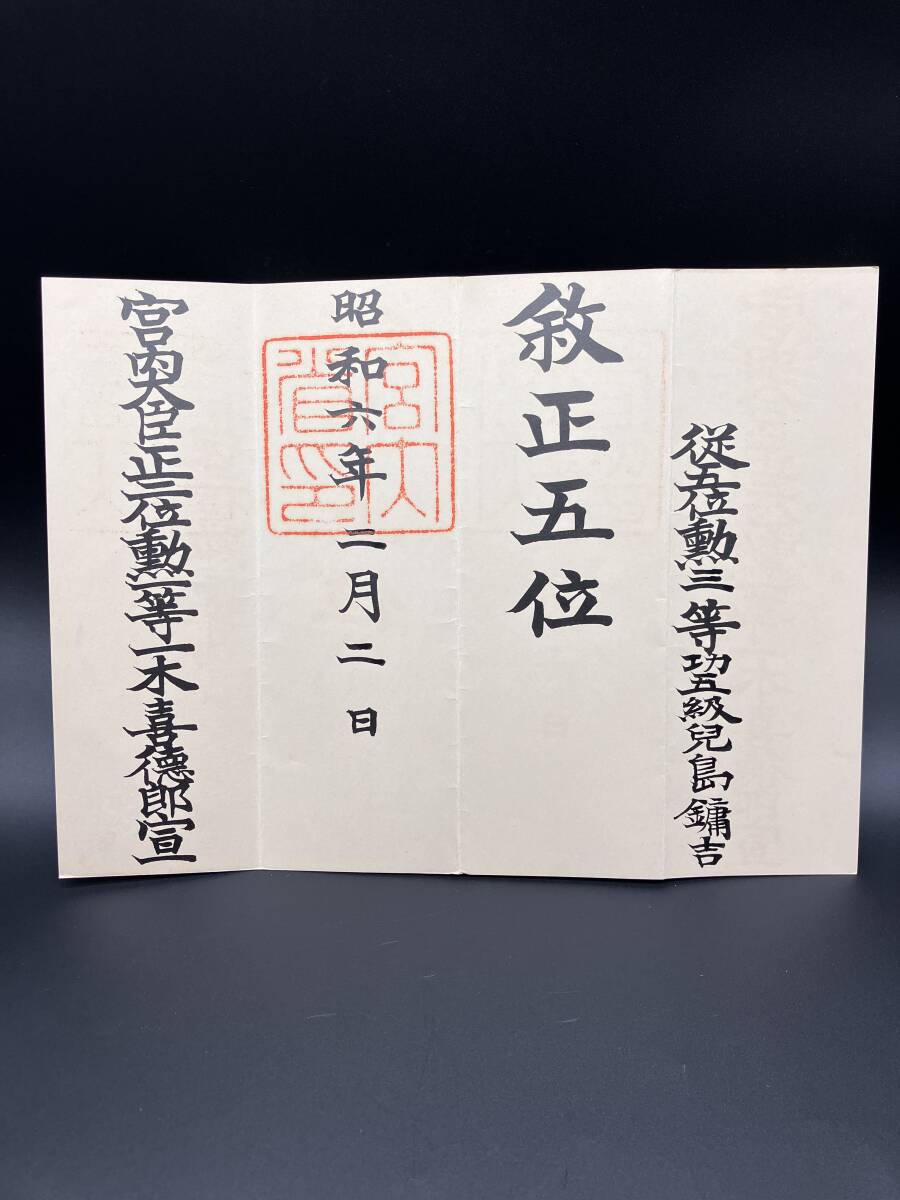 従五位勲三等功五級兒島鏞吉
敘正五位
昭和六年二月二日
宮内省印
宮内大臣正三位勲一等一木喜德郎宣